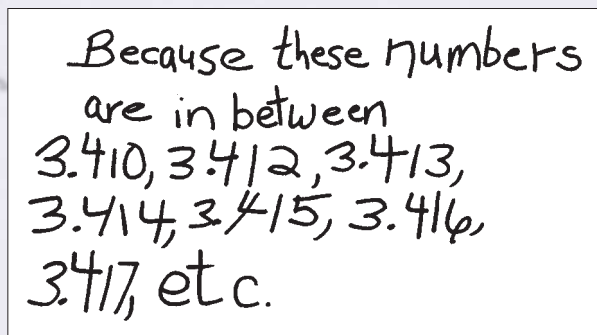 Because these numbers
are in between
3.410, 3.412, 3.413,
3.414, 3.415, 3.416,
3.417, etc.